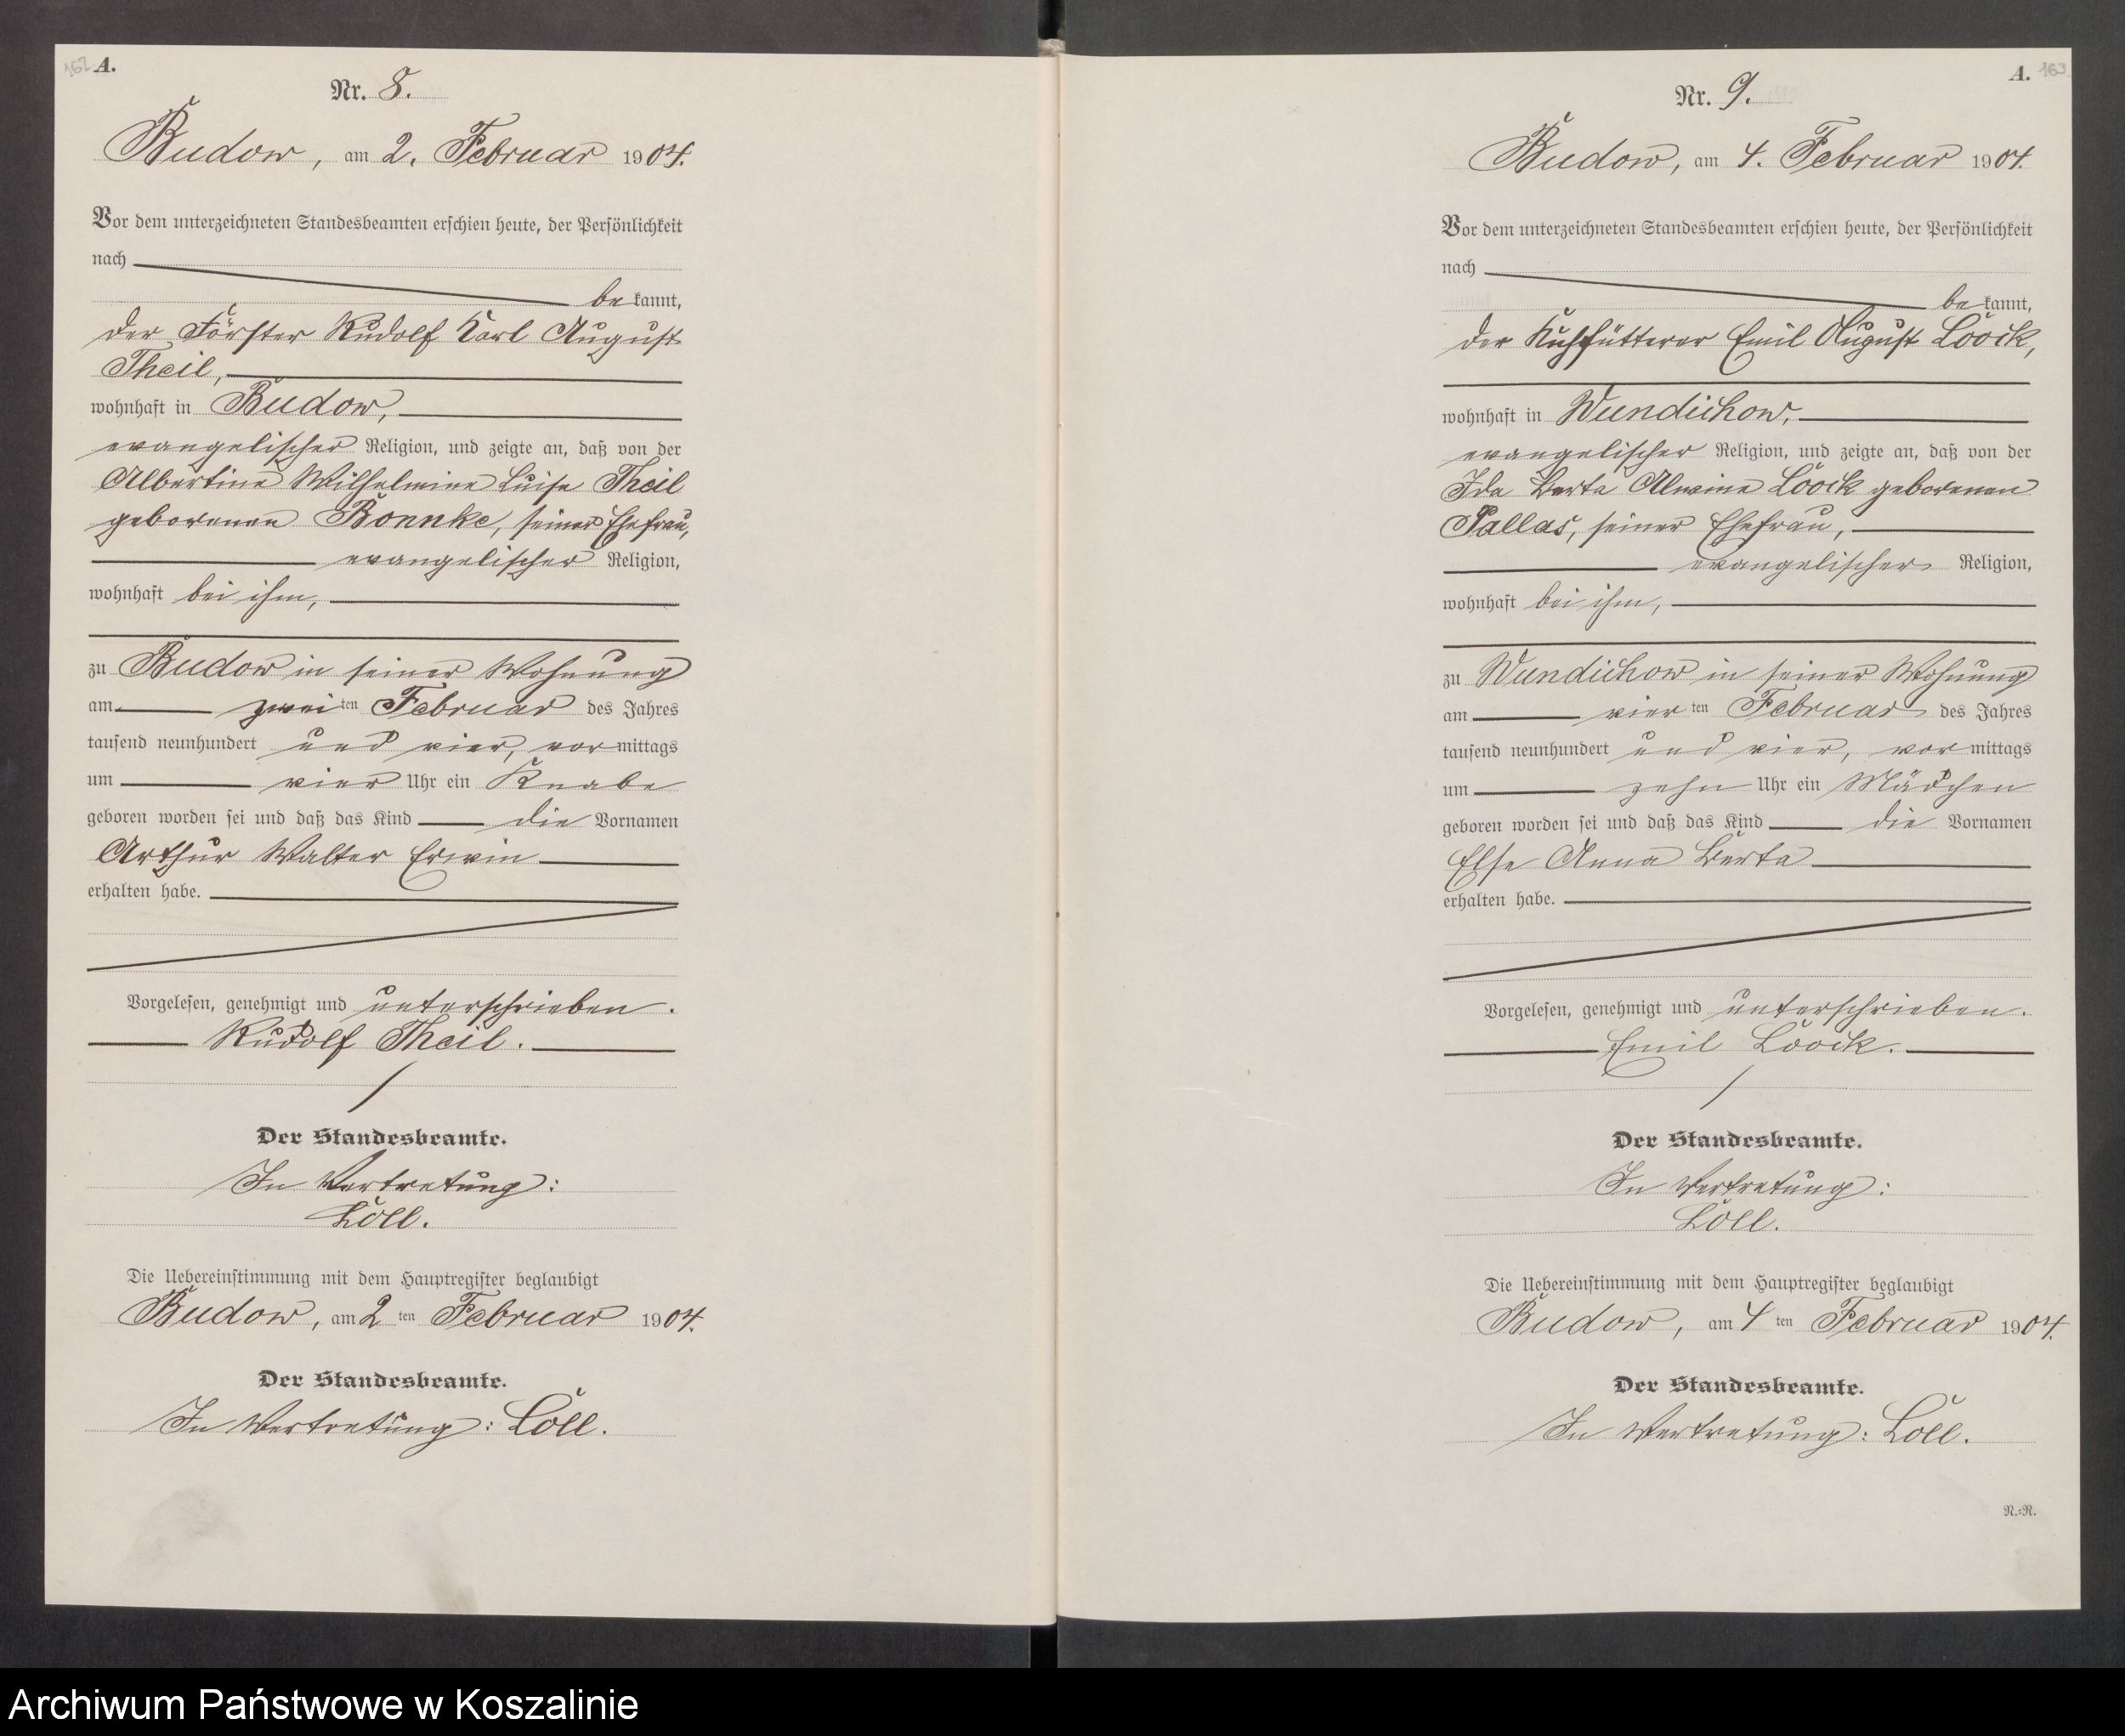 162 A.
Nr. 8.
Budow, am 2. Februar 1904.
Vor dem unterzeichneten Standesbeamten erschien heute, der Persönlichkeit
nach
be kannt,
der Förster Rudolf Karl August
Theil,
wohnhaft in Budow,
evangelischer Religion, und zeigte an, daß von der
Albertine Wilhelmine Luise Theil
geborenen Bonnke, seiner Ehefrau,
evangelischer Religion,
wohnhaft bei ihm,
zu Budow in seiner Wohnung
am zwei ten Februar des Jahres
tausend neunhundert und vier, vor mittags
um vier Uhr ein Knabe
geboren worden sei und daß das Kind die Vornamen
Arthur Walter Erwin
erhalten habe.
Vorgelesen, genehmigt und unterschrieben.
Rudolf Theil.
Der Standesbeamte.
In Vertretung:
Löll.
Die Uebereinstimmung mit dem Hauptregister beglaubigt
Budow, am 2 ten Februar 1904.
Der Standesbeamte.
In Vertretung: Löll.
A. 163
Nr. 9.
Budow, am 4. Februar 1904.
Vor dem unterzeichneten Standesbeamten erschien heute, der Persönlichkeit
nach
be kannt,
der Kuhfütterer Emil August Loock,
wohnhaft in Wundichow,
evangelischer Religion, und zeigte an, daß von der
Ida Berta Alwine Loock geborenen
Pallas, seiner Ehefrau,
evangelischer Religion,
wohnhaft bei ihm,
zu Wundichow in seiner Wohnung
am vier ten Februar des Jahres
tausend neunhundert und vier, vor mittags
um zehn Uhr ein Mädchen
geboren worden sei und daß das Kind die Vornamen
Else Anna Berta
erhalten habe.
Vorgelesen, genehmigt und unterschrieben.
Emil Loock.
Der Standesbeamte.
In Vertretung:
Löll.
Die Uebereinstimmung mit dem Hauptregister beglaubigt
Budow, am 4 ten Februar 1904.
Der Standesbeamte.
In Vertretung: Löll.
N.=R.
Archiwum Państwowe w Koszalinie